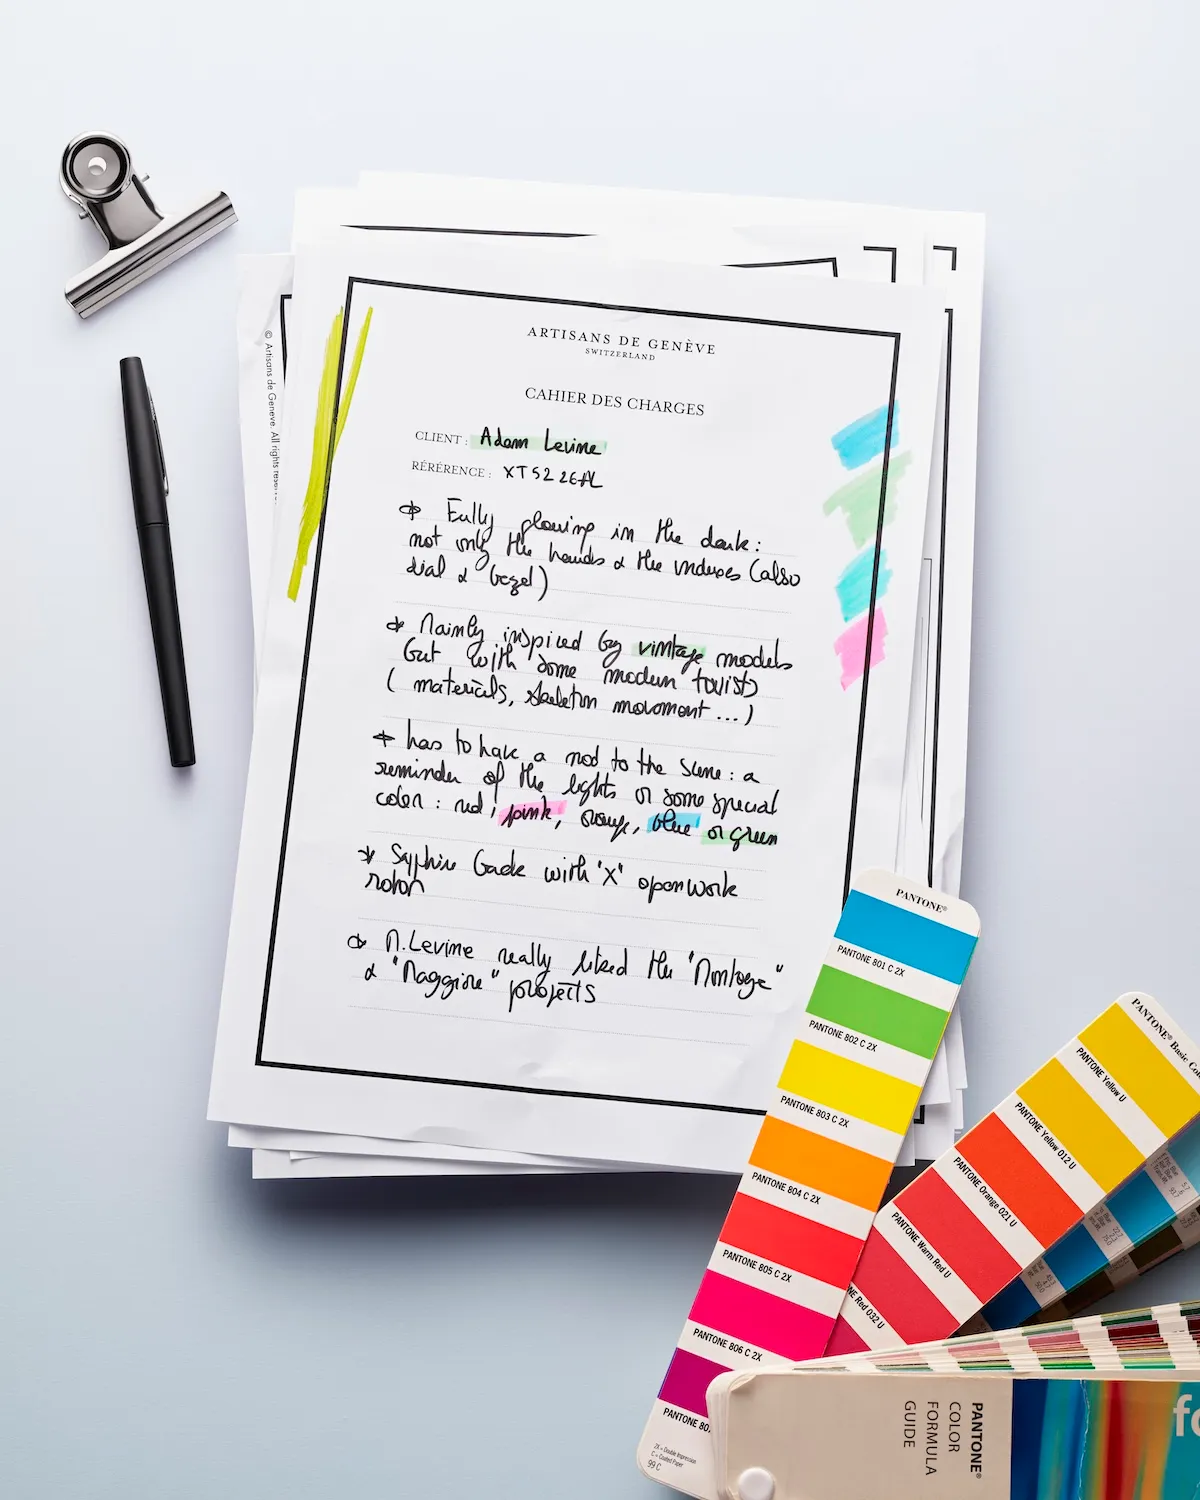 ARTISANS DE GENÈVE
SWITZERLAND
CAHIER DES CHARGES
CLIENT : Adam Levine
RÉRÉRENCE : XT52 26AL
Fully glowing in the dark:
not only the hands & the indexes (also
dial & bezel)
Mainly inspired by vintage models
but with some modern twists
( materials, skeleton movement ... )
has to have a nod to the scene : a
reminder of the lights or some special
color : red, pink, orange, blue or green
Sapphire Caseback with "X" openwork
rotor
M. Levine really liked the "Montoya"
& "Maggiore" projects
© Artisans de Geneve. All rights reserve
PANTONE®
PANTONE 801 C 2X
PANTONE 802 C 2X
PANTONE 803 C 2X
PANTONE 804 C 2X
PANTONE 805 C 2X
PANTONE 806 C 2X
PANTONE 80
2X = Double Impression
C = Coated Paper
99 C
PANTONE® Basic Co
PANTONE Yellow U
PANTONE Yellow 012 U
PANTONE Orange 021 U
PANTONE Warm Red U
NE Red 032 U
PANTONE®
COLOR
FORMULA
GUIDE
fo